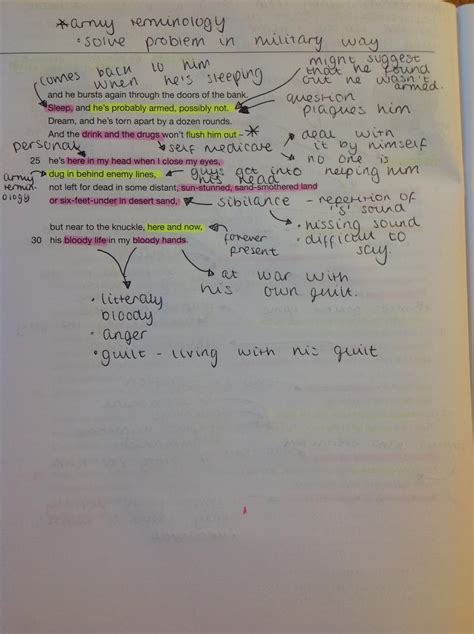 *army terminology
• solve problem in military way
comes back to him
when he's sleeping
might suggest
that he found
out he wasn't
armed.
and he bursts again through the doors of the bank.
Sleep, and he's probably armed, possibly not.
question
plagues him
Dream, and he's torn apart by a dozen rounds.
And the drink and the drugs won't flush him out – *
personal
self medicate
deal with
it by himself
no one is
helping him
25 he's here in my head when I close my eyes,
dug in behind enemy lines,
guys got into
his head
army
termin-
ology
not left for dead in some distant, sun-stunned, sand-smothered land
or six-feet-under in desert sand,
sibilance - repetition of
's' sound
• hissing sound
• difficult to
say.
but near to the knuckle, here and now,
forever
present
30 his bloody life in my bloody hands.
at war with
his own guilt.
• litteraly
bloody
• anger
• guilt - living with his guilt